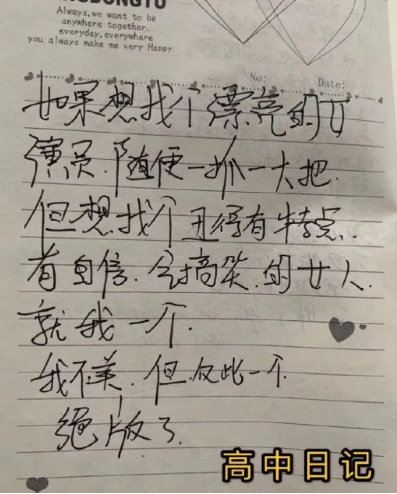 Always, we want to be
anywhere together.
everyday, everywhere
you always make me very Happy.
No: Date:
如果想找个漂亮的女
演员.随便一抓一大把.
但想找个丑得有特点.
有自信.会搞笑.的女人.
就我一个.
我不美,但仅此一个.
绝版了.
高中日记